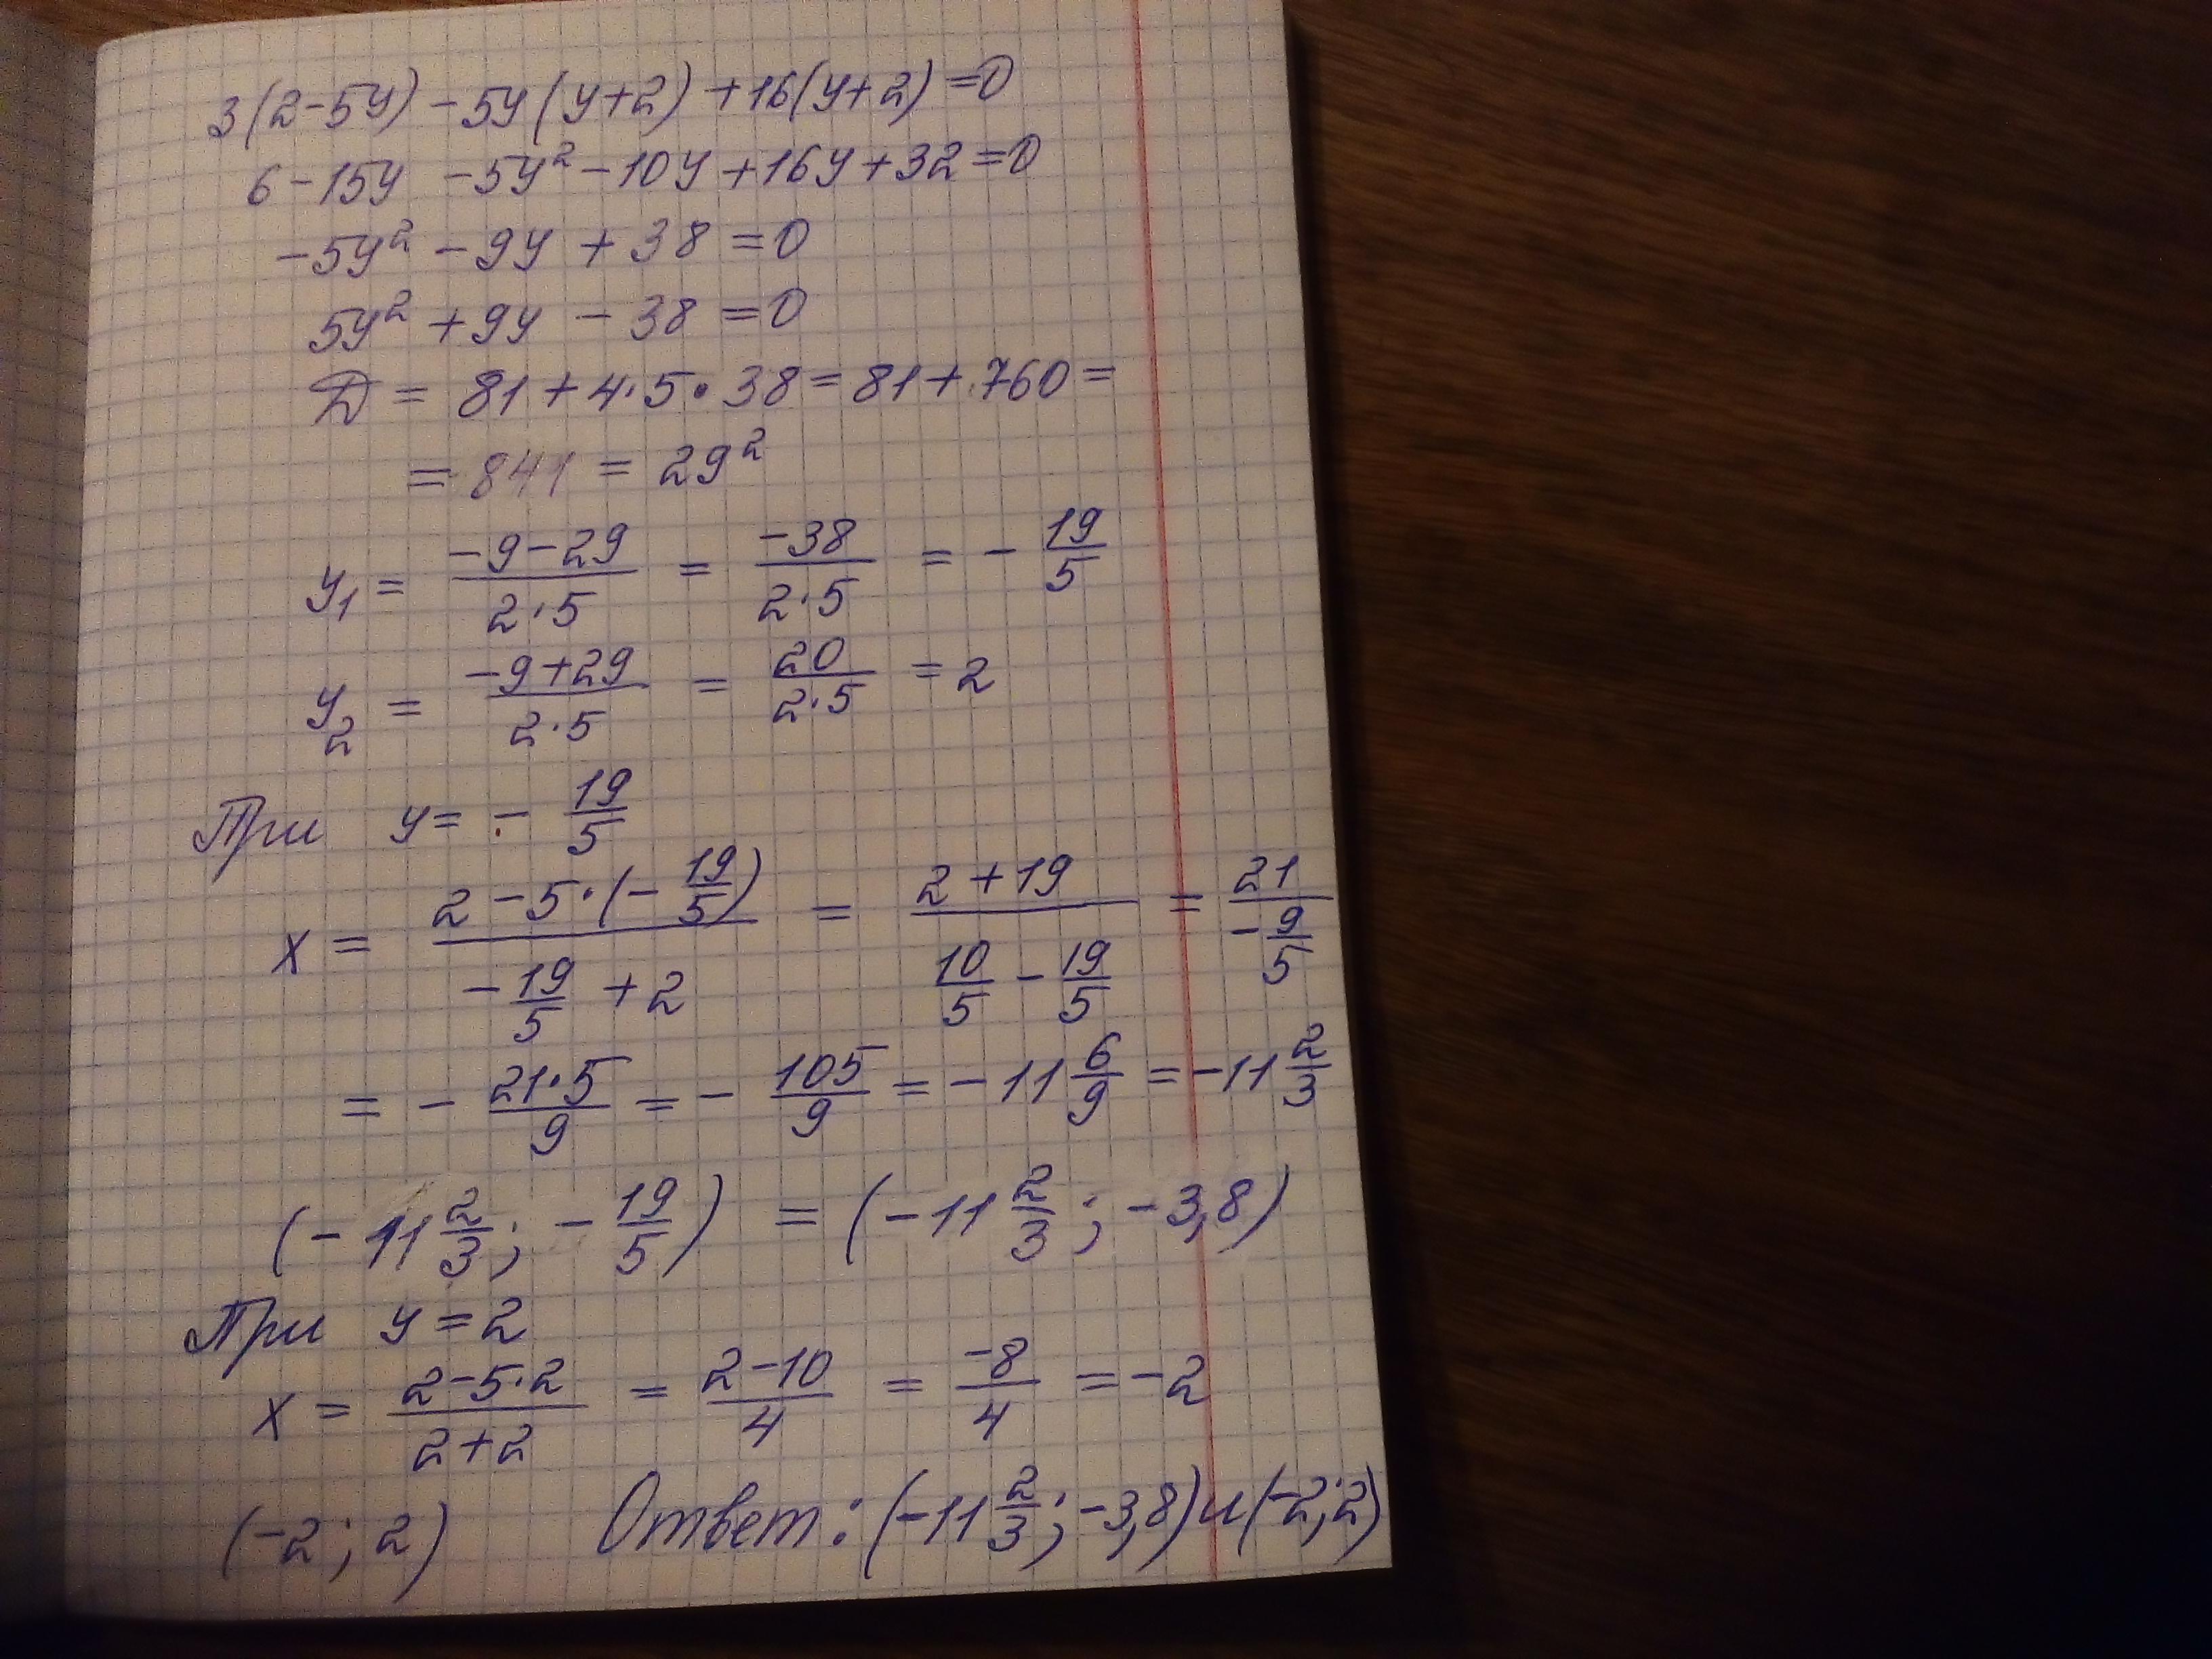 3(2-5y) -5y(y+2) +16(y+2)=0
6-15y -5y²-10y+16y+32=0
-5y² -9y + 38 =0
5y² +9y - 38 =0
D = 81+4·5·38=81+760=
= 841 = 29²
y₁ = (-9-29)/(2·5) = -38/(2·5) = - 19/5
y₂ = (-9+29)/(2·5) = 20/(2·5) = 2
При y= - 19/5
x = (2-5·(-19/5))/(-19/5 +2) = (2+19)/(10/5 - 19/5) = 21/(-9/5)
= - 21·5/9 = - 105/9 = -11 6/9 = -11 2/3
(-11 2/3; - 19/5) = (-11 2/3; -3,8)
При y=2
x = (2-5·2)/(2+2) = (2-10)/4 = -8/4 = -2
(-2; 2) Ответ: (-11 2/3; -3,8) и (-2; 2)